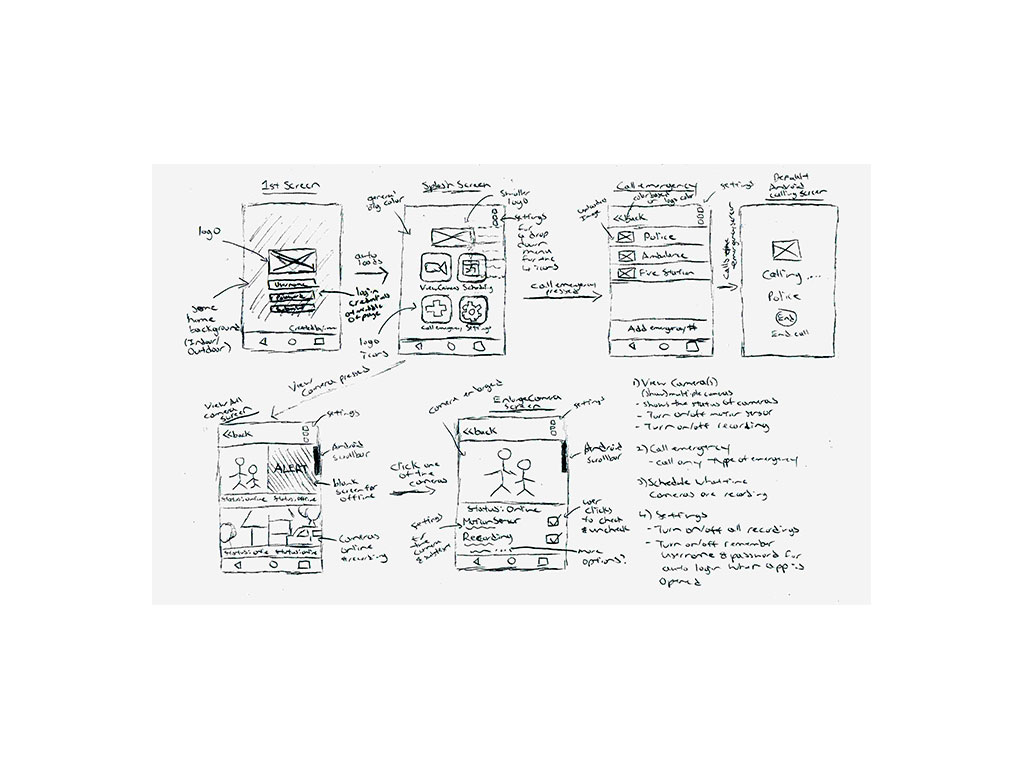 1st Screen
logo
Username
Some
home
background
(Indoor/
Outdoor)
login
credentials
Created by:
auto
loads
Splash Screen
general
color
Smaller
logo
settings
for
drop
down
menu
for the
4 icons
View Cameras Scheduling
Call emergency Settings
logo
icons
Call emergency
pressed
Call emergency
color based
on logo color
settings
Image
<<back
Police
Ambulance
Fire Station
Add emergency #
Calls the
emergency screen
Default
Android
Calling Screen
Calling ....
Police
End
End call
View
Camera pressed
View All
camera
screen
settings
<<back
ALERT
Status: online Status: offline
Status: online Status: online
Android
scrollbar
blank
screen for
offline
Cameras
online
& recording
Click one
of the
cameras
camera enlarged
Enlarge Camera
Screen
settings
<<back
Status: Online
Motion Sensor
Recording
....
settings
camera
Android
scrollbar
user
clicks
to check
& uncheck
more
options?
1) View Camera(s)
(show) multiple cameras
- Shows the status of cameras
- Turn on/off motion sensor
- Turn on/off recording
2) Call emergency
- call any type of emergency
3) Schedule what time
cameras are recording
4) Settings
- Turn on/off all recordings
- Turn on/off remember
username & password for
auto login when app is
opened